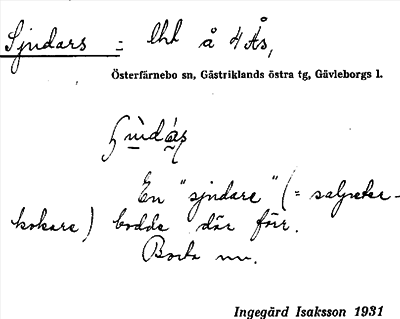 Sjudars = lht å 4 Ås,
Österfärnebo sn, Gästriklands östra tg, Gävleborgs l.
En "sjudare" (= salpeter-
kokare) bodde där förr.
Borta nu.
Ingegärd Isaksson 1931